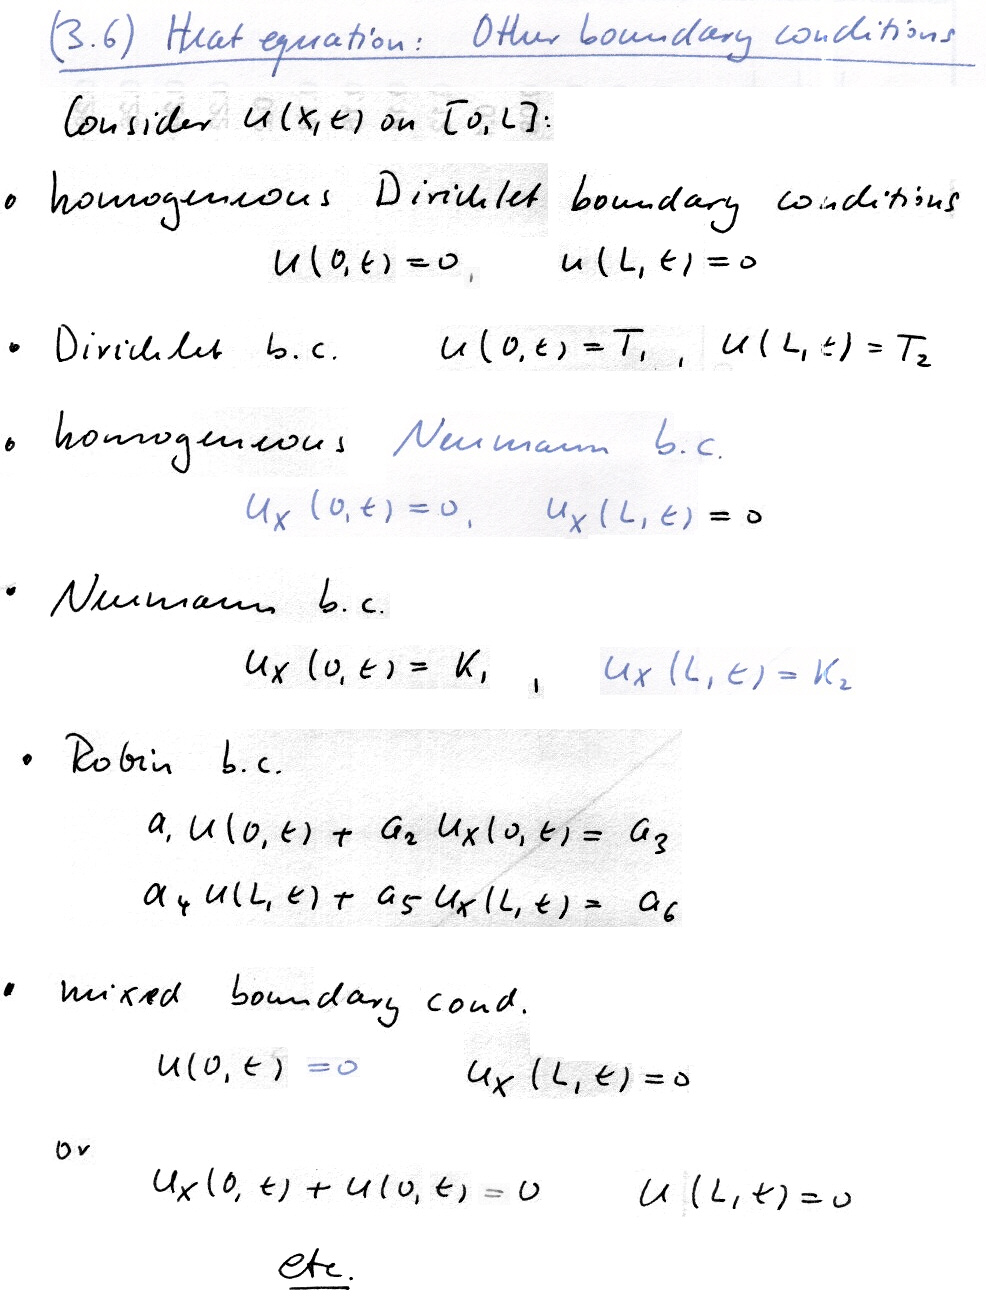 (3.6) Heat equation: Other boundary conditions
Consider u(x,t) on [0,L]:
• homogeneous Dirichlet boundary conditions
u(0,t)=0, u(L,t)=0
• Dirichlet b.c. u(0,t)=T₁, u(L,t)=T₂
• homogeneous Neumann b.c.
u_x(0,t)=0, u_x(L,t)=0
• Neumann b.c.
u_x(0,t)=K₁, u_x(L,t)=K₂
• Robin b.c.
a₁u(0,t)+a₂u_x(0,t)=a₃
a₄u(L,t)+a₅u_x(L,t)=a₆
• mixed boundary cond.
u(0,t)=0 u_x(L,t)=0
or
u_x(0,t)+u(0,t)=0 u(L,t)=0
etc.